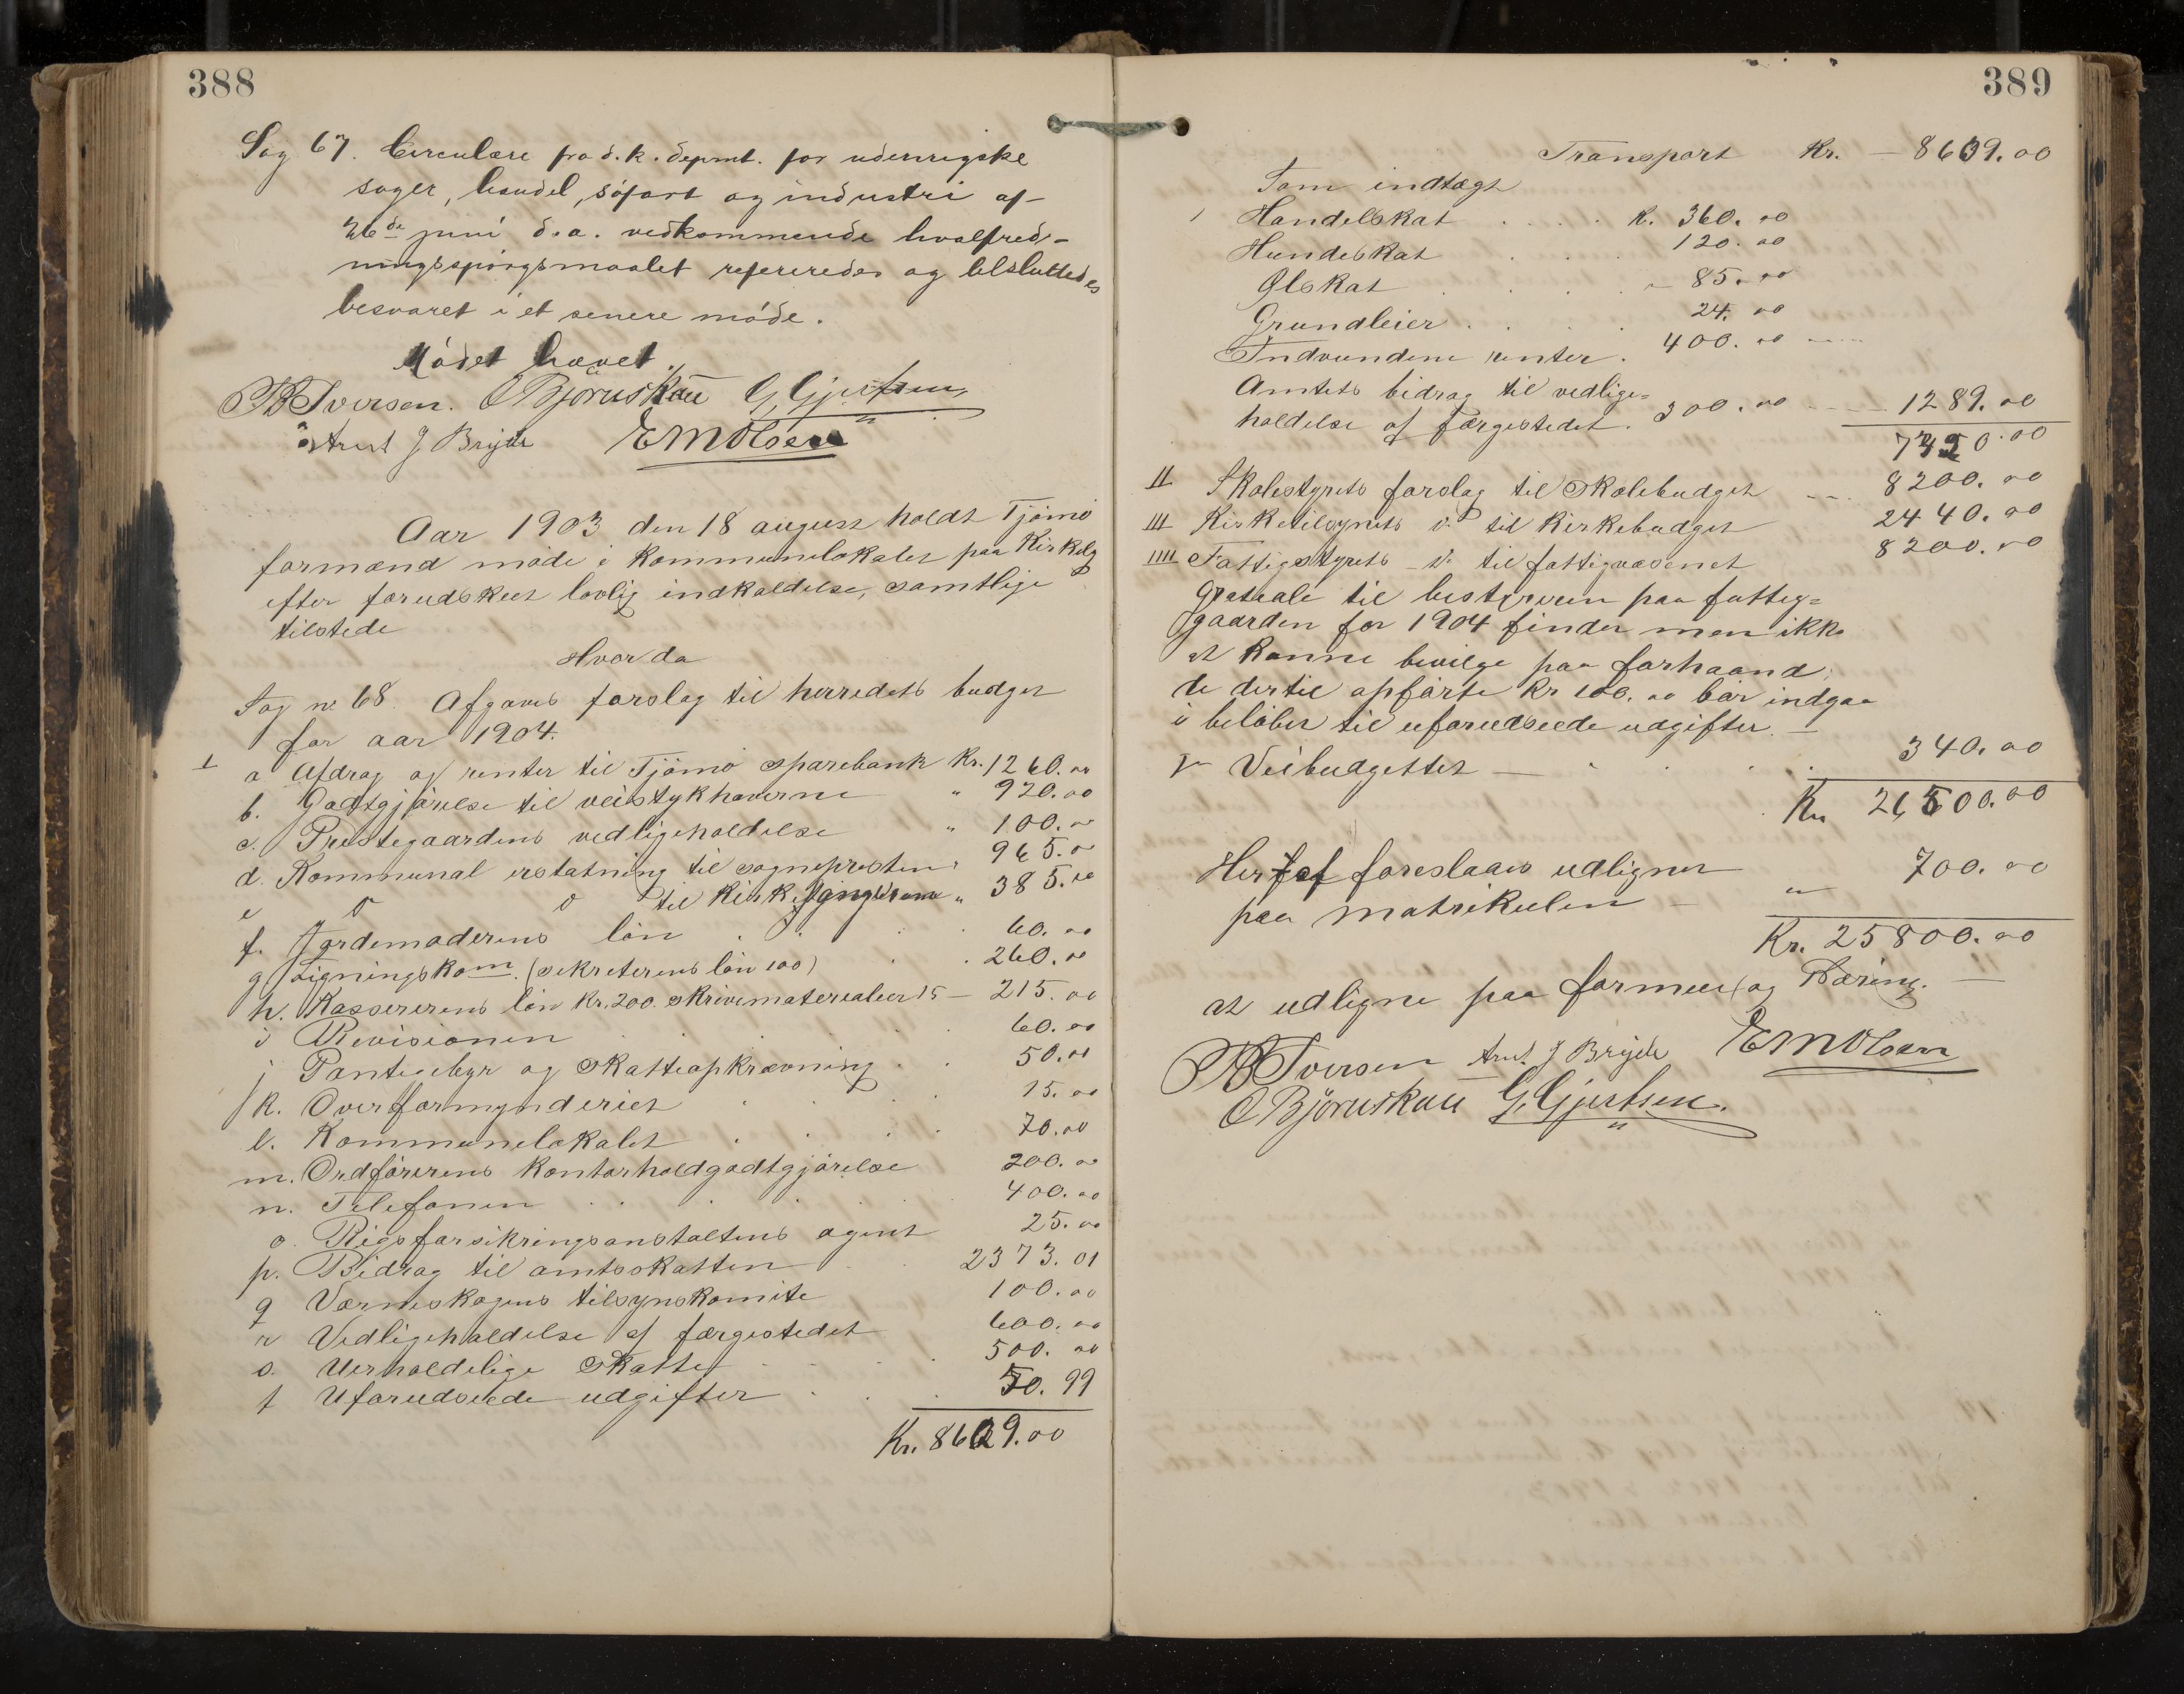 388
Sag 67. Circulære fra d. k. depmt. for udenrigske
sager, handel, söfart og industri af
26de juni d. a. vedkommende hvalfred-
ningsspörgsmaalet refereredes og besluttedes
besvaret i et senere möde.
Mödet hævet.
Iversen. O Bjørnskau G. Gjertsen
Arnt J Bryde E M Olsen
Aar 1903 den 18 august holdt Tjømø
formænd møde i kommunelokalet paa Kirkelg
efter forudskeet lovlig indkaldelse, samtlige
tilstede
Hvorda
Sag no 68. Afgaves forslag til herredets budget
for aar 1904.
I a Afdrag og renter til Tjømø sparebank Kr. 1260.00
b. Godtgjørelse til veistykhaverne " 920.00
c. Prestegaardens vedligeholdelse " 100.00
d. Kommunal erstatning til sognepresten " 965.00
e do do til Kirkesangeren " 385.00
f. Jordemoderens løn 60.00
g Ligningskom. (sekreterens løn 100) 260.00
h. Kassererens løn Kr. 200. Skrivematerialier 15 – 215.00
i Revisionen 60.00
j Pantegebyr og Skatteopkrævning 50.00
k. Overformynderiet 15.00
l. Kommunelokalet 70.00
m. Ordførerens kontorholdgodtgjørelse 200.00
n. Telefonen 400.00
o. Rigsforsikringsanstaltens agent 25.00
p. Bidrag til amtsskatten 2373.01
q Værneskogens tilsynskomite 100.00
r Vedligeholdelse af færgestedet 600.00
s. Uerholdelige Skatter 500.00
t Uforudseede udgifter 50.99
Kr. 8609.00
389
Transport Kr. – 8609.00
Som indtægt
Handelskat K. 360.00
Hundeskat 120.00
Ølskat – 85.00
Grundleier 24.00
Indvundene renter. 400.00
Amtets bidrag til vedlige=
holdelse af færgestedet. 300.00 1289.00
7320.00
II Skolestyrets forslag til Skolebudget 8200.00
III Kirketilsynets do til Kirkebudget 2440.00
IIII Fattigstyrets do til fattigvæsenet 8200.00
Gratiale til bestyreren paa fattig=
gaarden for 1904 finder man ikke
at kunne bevilge paa forhaand;
de dertil opførte Kr 100.00 bør indgaa
i beløbet til uforudseede udgifter. –
V Veibudgettet – 340.00
Kr. 26500.00
Heraf foreslaaes udlignet
paa matrikulen – " 700.00
Kr. 25800.00
at udligne paa formue og Næring. –
Iversen Arnt J Bryde E M Olsen
O Bjørnskau G. Gjertsen.